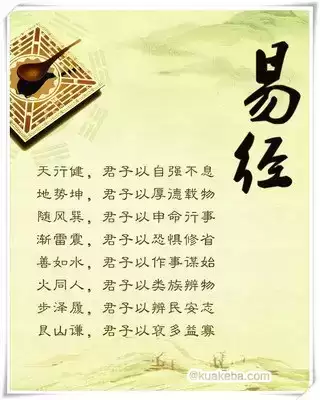 易经
天行健，君子以自强不息
地势坤，君子以厚德载物
随风巽，君子以申命行事
渐雷震，君子以恐惧修省
善如水，君子以作事谋始
火同人，君子以类族辨物
步泽履，君子以辨民安志
艮山谦，君子以裒多益寡
@kuakeba.com